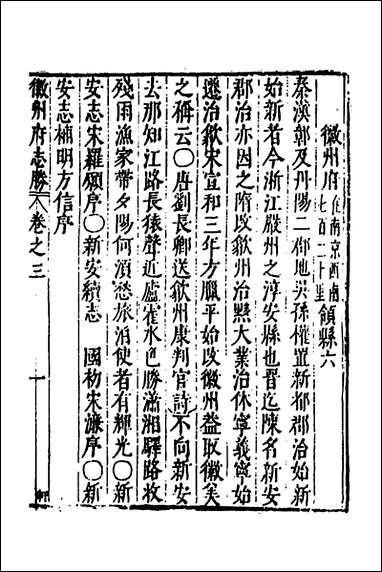 徽州府在南京西南七百二十里領縣六
秦漢鄣及丹陽二郡地吳孫權置新都郡治始新
始新者今浙江嚴州之淳安縣也晉迄陳名新安
郡治亦因之隋改歙州治黟大業治休寧義寧始
遷治歙宋宣和三年方臘平始改徽州葢取徽美
之稱云〇唐劉長卿送歙州康判官詩不向新安
去那知江路長猿聲近廬霍水色勝瀟湘驛路收
殘雨漁家帶夕陽何湏愁旅泊使者有輝光〇新
安志宋羅願序〇新安續志 國初宋濂序〇新
安志補明方信序
徽州府志勝 卷之三 一